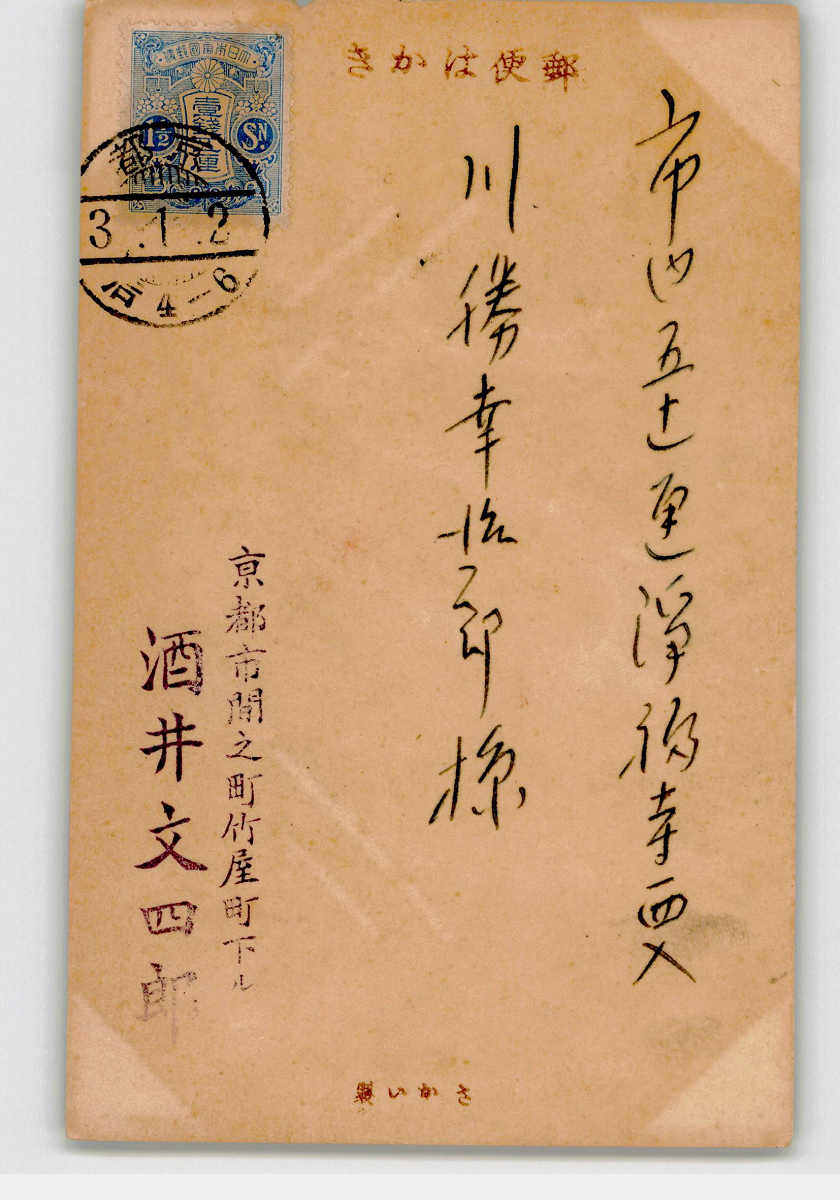 郵便はかき
大日本帝國郵便
壹錢五厘
1½ Sɴ.
京都
3.1.2
后4-6
市内五辻通淨福寺西入
川勝幸治郎様
京都市間之町竹屋町下ル
酒井文四郎
さかい製